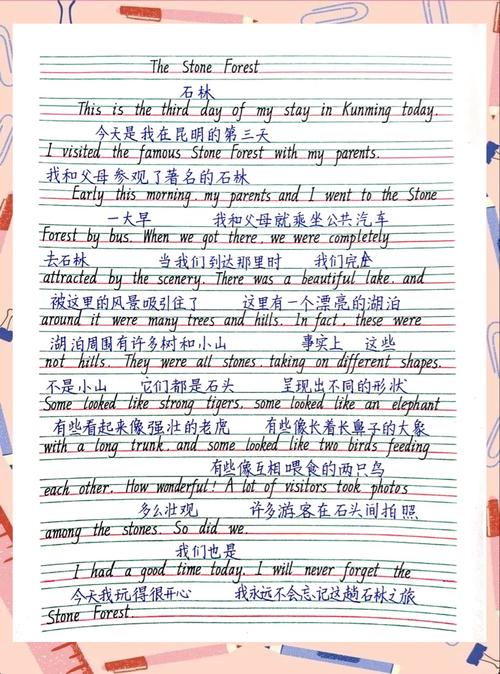 The Stone Forest
石林
This is the third day of my stay in Kunming today.
今天是我在昆明的第三天
I visited the famous Stone Forest with my parents.
我和父母参观了著名的石林
Early this morning, my parents and I went to the Stone
一大早 我和父母就乘坐公共汽车
Forest by bus. When we got there, we were completely
去石林 当我们到达那里时 我们完全
attracted by the scenery. There was a beautiful lake, and
被这里的风景吸引住了 这里有一个漂亮的湖泊
around it were many trees and hills. In fact, these were
湖泊周围有许多树和小山 事实上 这些
not hills. They were all stones, taking on different shapes.
不是小山 它们都是石头 呈现出不同的形状
Some looked like strong tigers, some looked like an elephant
有些看起来像强壮的老虎 有些像长着长鼻子的大象
with a long trunk, and some looked like two birds feeding
有些像互相喂食的两只鸟
each other. How wonderful! A lot of visitors took photos
多么壮观 许多游客在石头间拍照
among the stones. So did we.
我们也是
I had a good time today. I will never forget the
今天我玩得很开心 我永远不会忘记这趟石林之旅
Stone Forest.